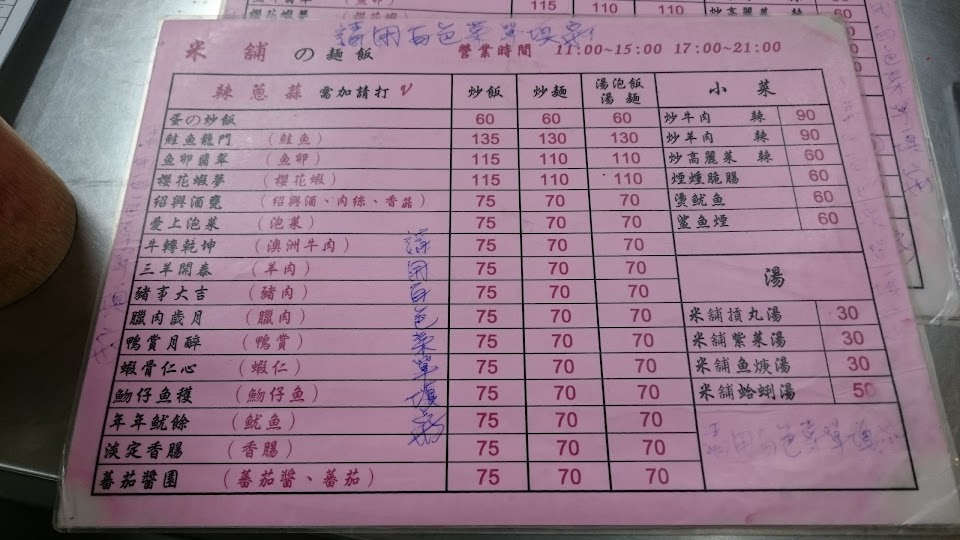 請用白色菜單填寫
米舖の麵飯 營業時間 11:00~15:00 17:00~21:00
辣 蔥 蒜 需加請打 V 炒飯 炒麵 湯泡飯 湯麵
蛋の炒飯 60 60 60
鮭魚龍門 (鮭魚) 135 130 130
魚卵翡翠 (魚卵) 115 110 110
櫻花蝦夢 (櫻花蝦) 115 110 110
紹興酒甕 (紹興酒、肉絲、香菇) 75 70 70
愛上泡菜 (泡菜) 75 70 70
牛轉乾坤 (澳洲牛肉) 75 70 70
三羊開泰 (羊肉) 75 70 70
豬事大吉 (豬肉) 75 70 70
臘肉歲月 (臘肉) 75 70 70
鴨賞月醉 (鴨賞) 75 70 70
蝦骨仁心 (蝦仁) 75 70 70
魩仔魚穫 (魩仔魚) 75 70 70
年年魷餘 (魷魚) 75 70 70
淡定香腸 (香腸) 75 70 70
蕃茄醬園 (蕃茄醬、蕃茄) 75 70 70
請用白色菜單填寫
小菜
炒牛肉 辣 90
炒羊肉 辣 90
炒高麗菜 辣 60
煙燻脆腸 60
燙魷魚 60
鯊魚煙 60
湯
米舖摃丸湯 30
米舖紫菜湯 30
米舖魚焿湯 30
米舖蛤蜊湯 50
請用白色菜單填寫